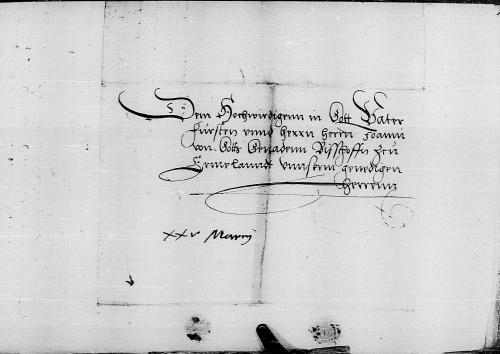 Dem Hochwirdigenn in Gott Vater
Fursten vnnd herrn herrn Joanni
von Gots Genadenn Bisschoffn zcu
Ermelanndt vnnserm genedigen
Herrenn
xxv Marcij